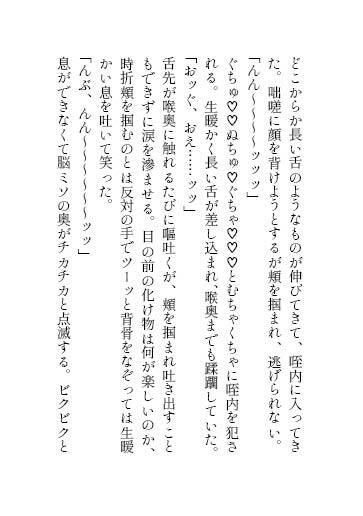 どこからか長い舌のようなものが伸びてきて、咥内に入ってき
た。咄嗟に顔を背けようとするが頬を掴まれ、逃げられない。
「んん～～～～ッッッ」
ぐちゅ♡♡ぬちゅ♡ぐちゃ♡♡♡とむちゃくちゃに咥内を犯さ
れる。生暖かく長い舌が差し込まれ、喉奥までも蹂躙していた。
「おッぐ、おぇ……ッッ」
舌先が喉奥に触れるたびに嘔吐くが、頬を掴まれ吐き出すこと
もできずに涙を滲ませる。目の前の化け物は何が楽しいのか、
時折頬を掴むのとは反対の手でツーッと背骨をなぞっては生暖
かい息を吐いて笑った。
「んぶ、んん～～～～～～ッッ」
息ができなくて脳ミソの奥がチカチカと点滅する。ビクビクと